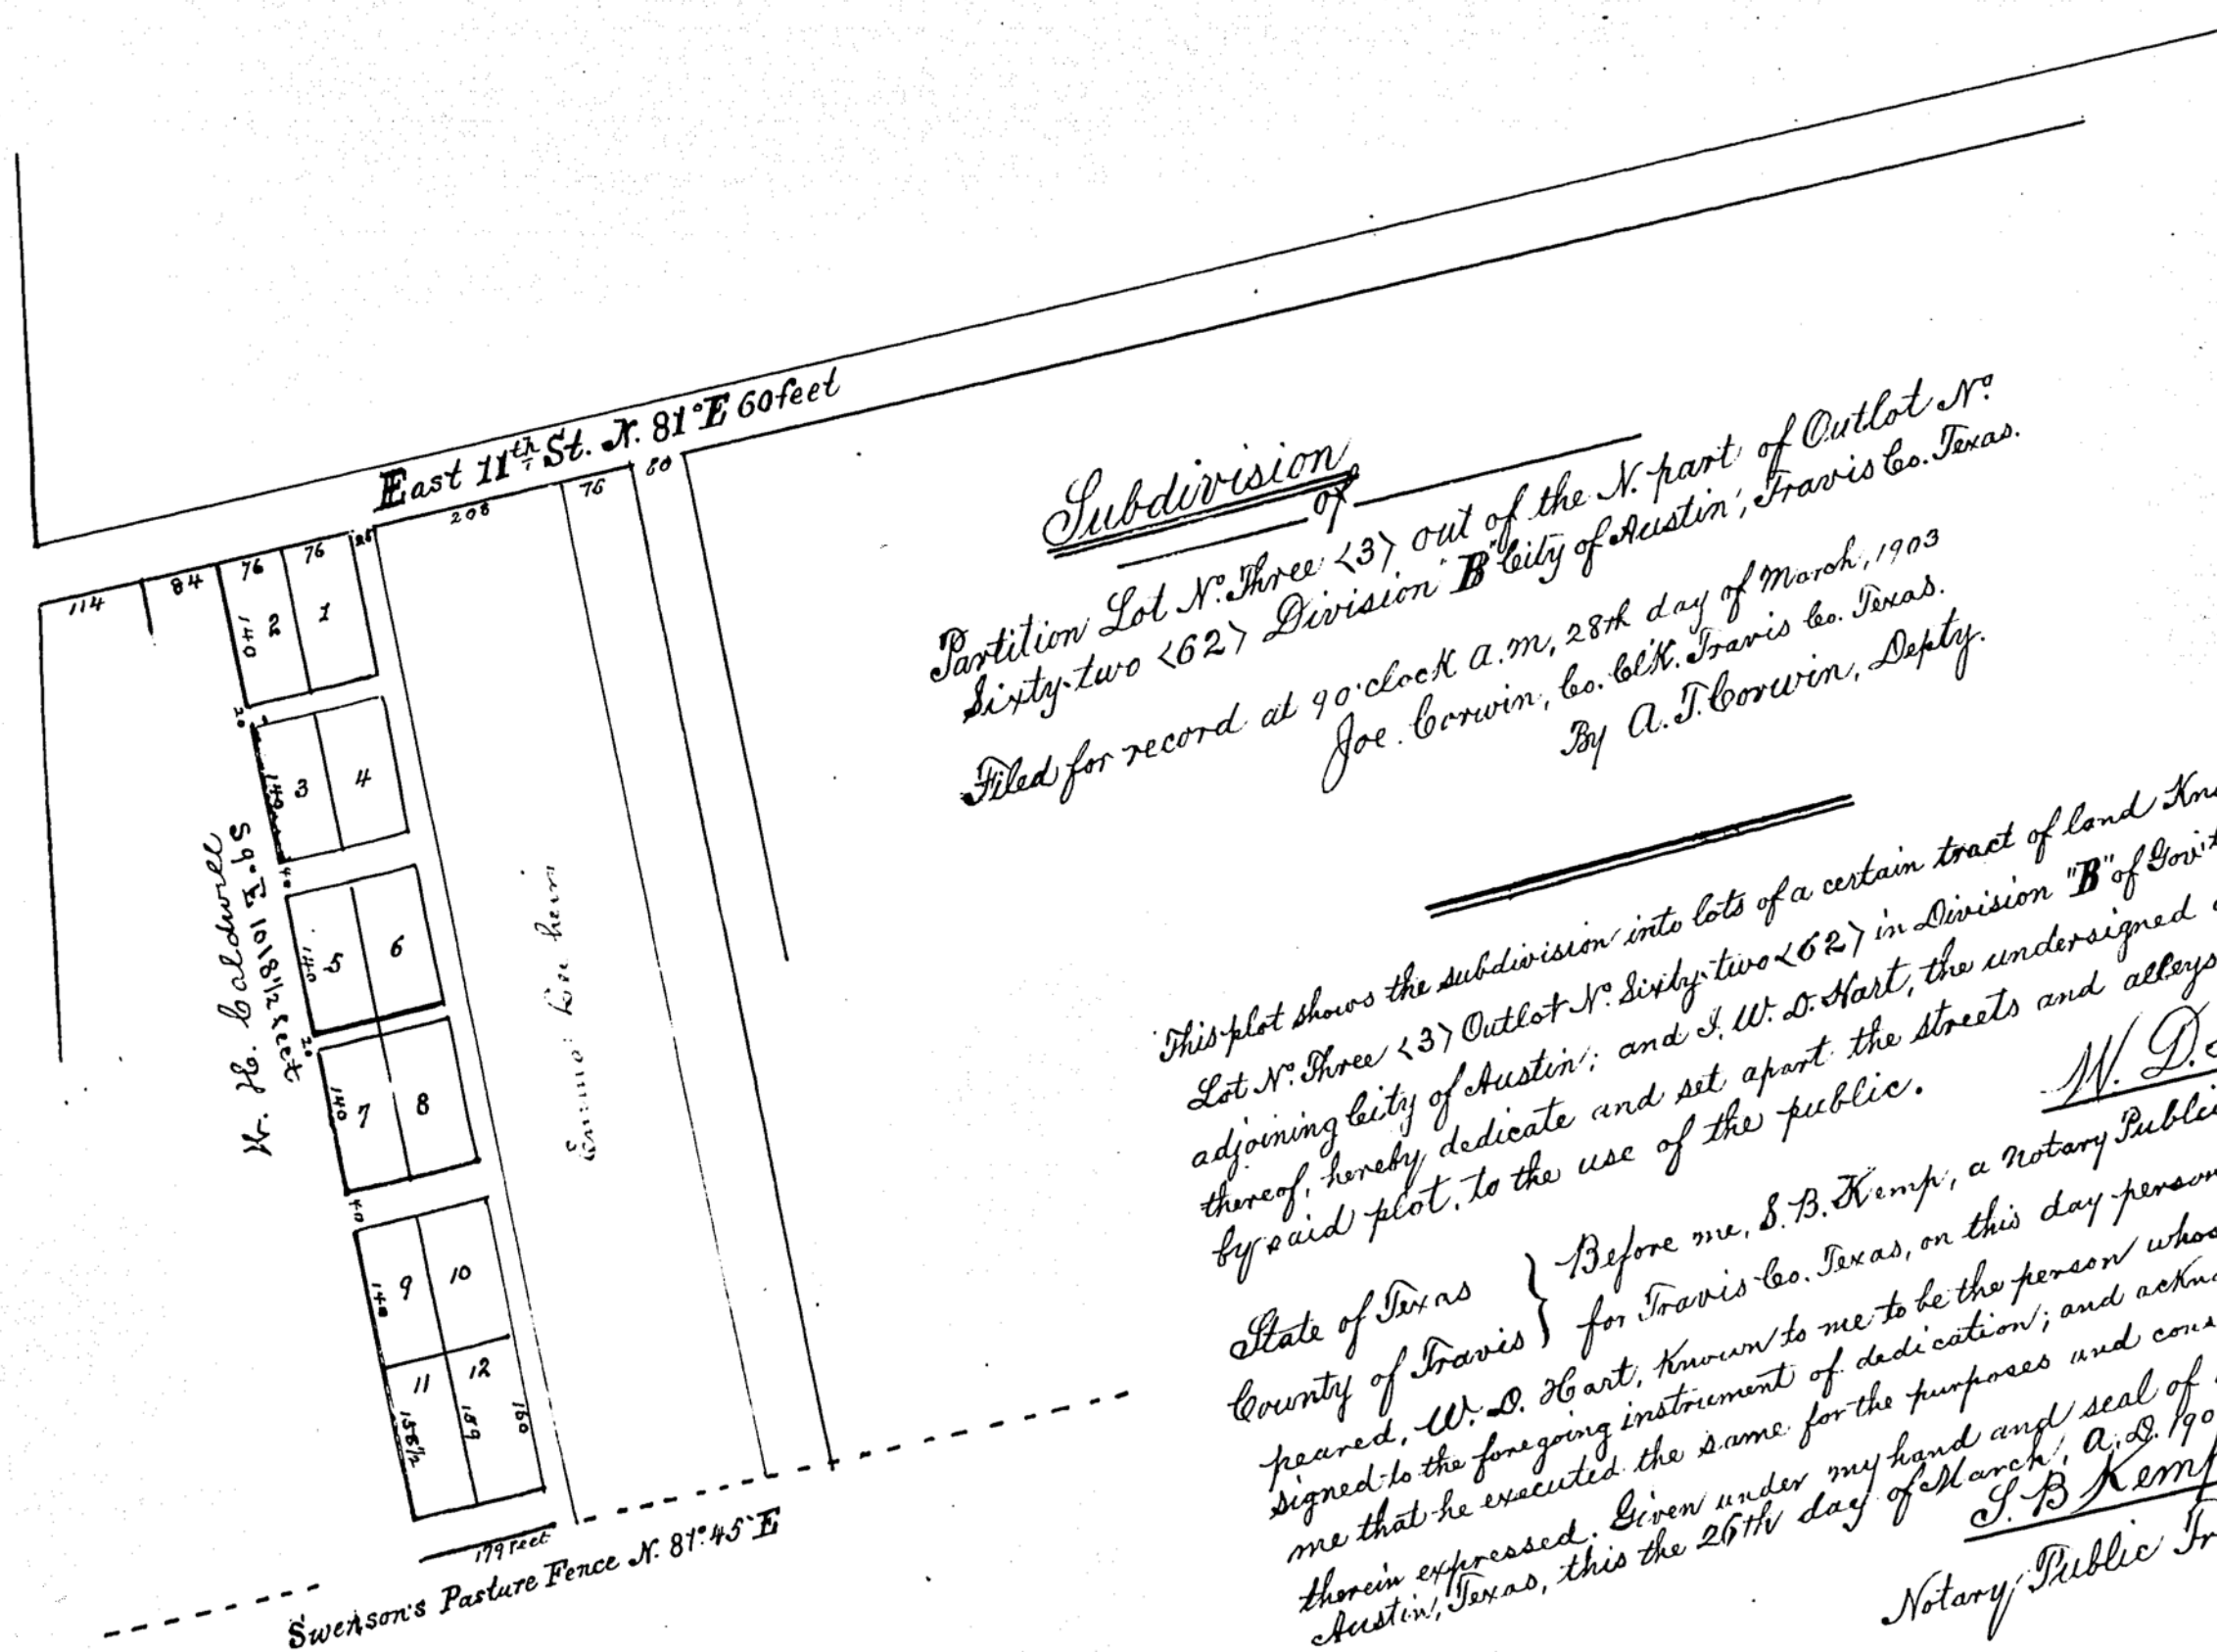 East 11th St. N. 81° E 60 feet
114
84
76
76
25
208
76
60
140
2
1
20
140
3
4
40
140
5
6
20
140
7
8
40
140
9
10
11
12
158 1/2
159
160
W. H. Caldwell
S 9° E 1018 1/2 feet
179 feet
Swenson's Pasture Fence N. 81° 45' E
Subdivision
of
Partition Lot No. Three <3> out of the N. part of Outlot No.
Sixty-two <62> Division "B" City of Austin, Travis Co. Texas.
Filed for record at 9 o'clock A.M, 28th day of March, 1903
Joe. Corwin, Co. Cl'K. Travis Co. Texas.
By A. T. Corwin, Depty.
This plot shows the subdivision into lots of a certain tract of land Kn
Lot No. Three <3> Outlot No. Sixty-two <62> in Division "B" of Gov't
adjoining City of Austin; and I, W. D. Hart, the undersigned
thereof, hereby dedicate and set apart the streets and alleys
by said plot, to the use of the public.
W. D.
State of Texas
County of Travis
Before me, S. B. Kemp, a Notary Public
for Travis Co. Texas, on this day person
peared, W. D. Hart, Known to me to be the person whos
signed to the foregoing instrument of dedication; and ackn
me that he executed the same for the purposes and cons
therein expressed. Given under my hand and seal of
Austin, Texas, this the 26th day of March, A. D. 190
S. B Kemp
Notary Public Tr